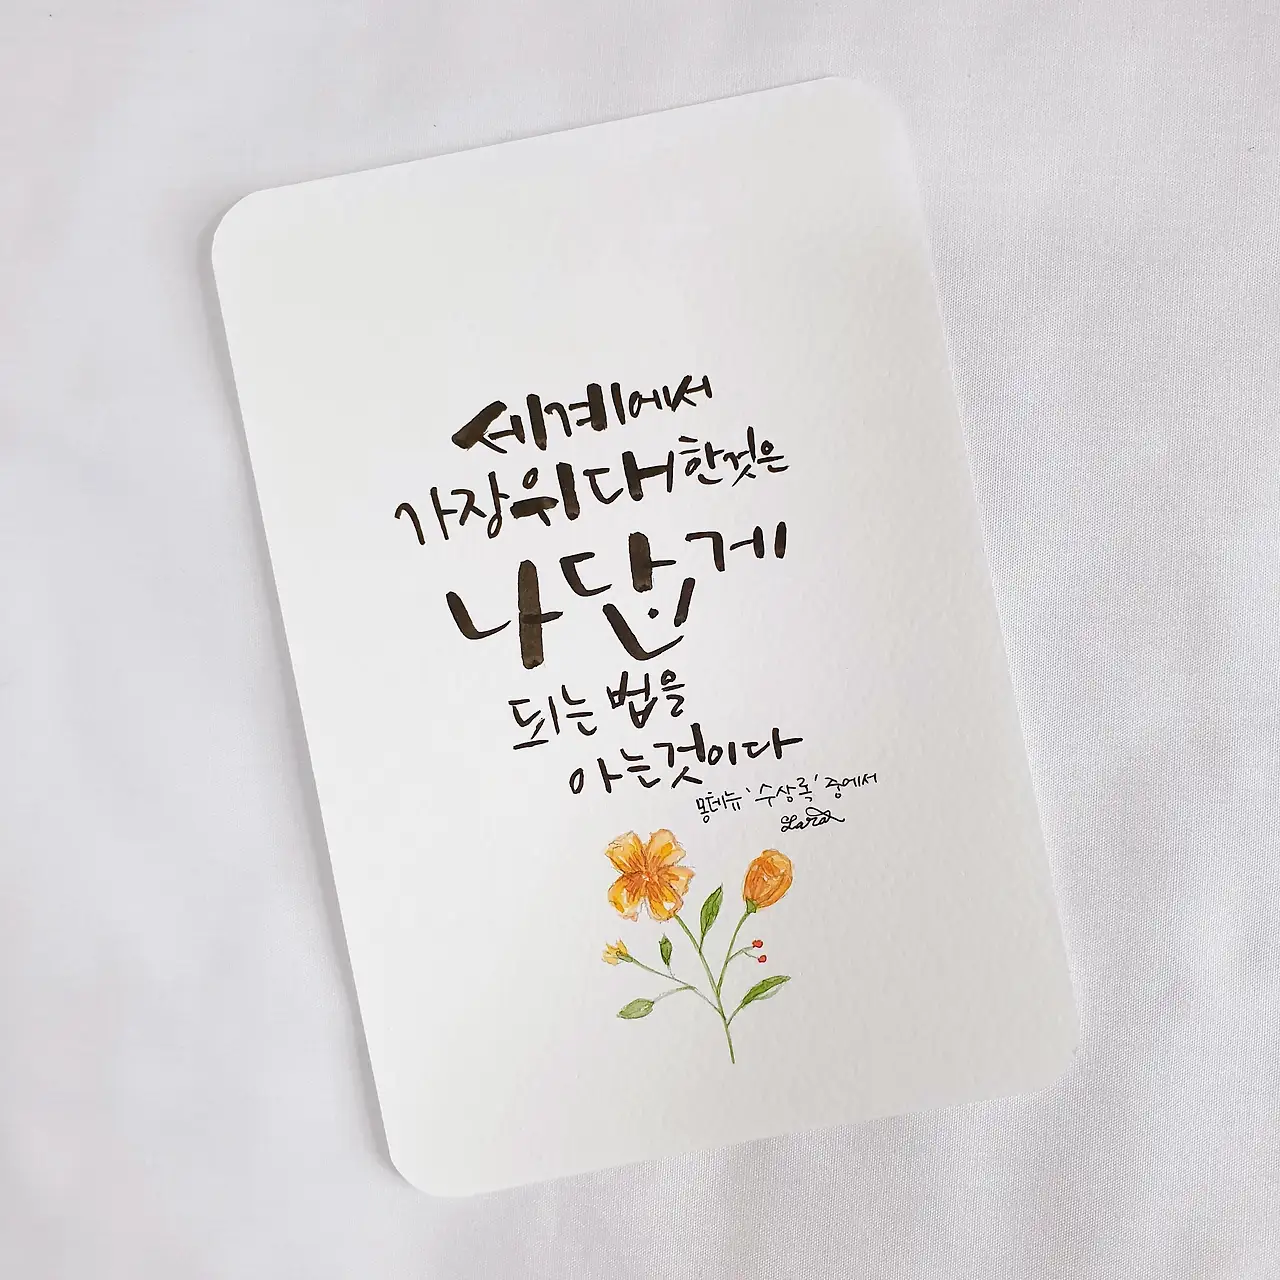 세계에서
가장위대한것은
나답게
되는 법을
아는것이다
몽테뉴 '수상록' 중에서
Lara